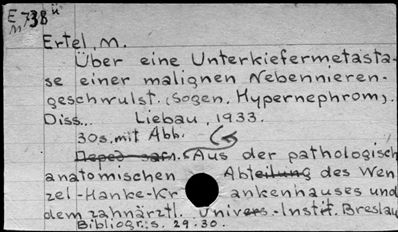 E 738 ü
m
Ertel, M.
Über eine Unterkiefermetasta-
se einer malignen Nebennieren-
geschwulst. (Sogen. Hypernephrom).
Diss... Liebau, 1933.
30s. mit Abb.
Aus der pathologisch
anatomischen Abteilung des Wen
zel-Hanke-Kr ankenhauses und
dem zahnärztl. Univers.-Instit. Breslau
Bibliogr. s. 29-30.